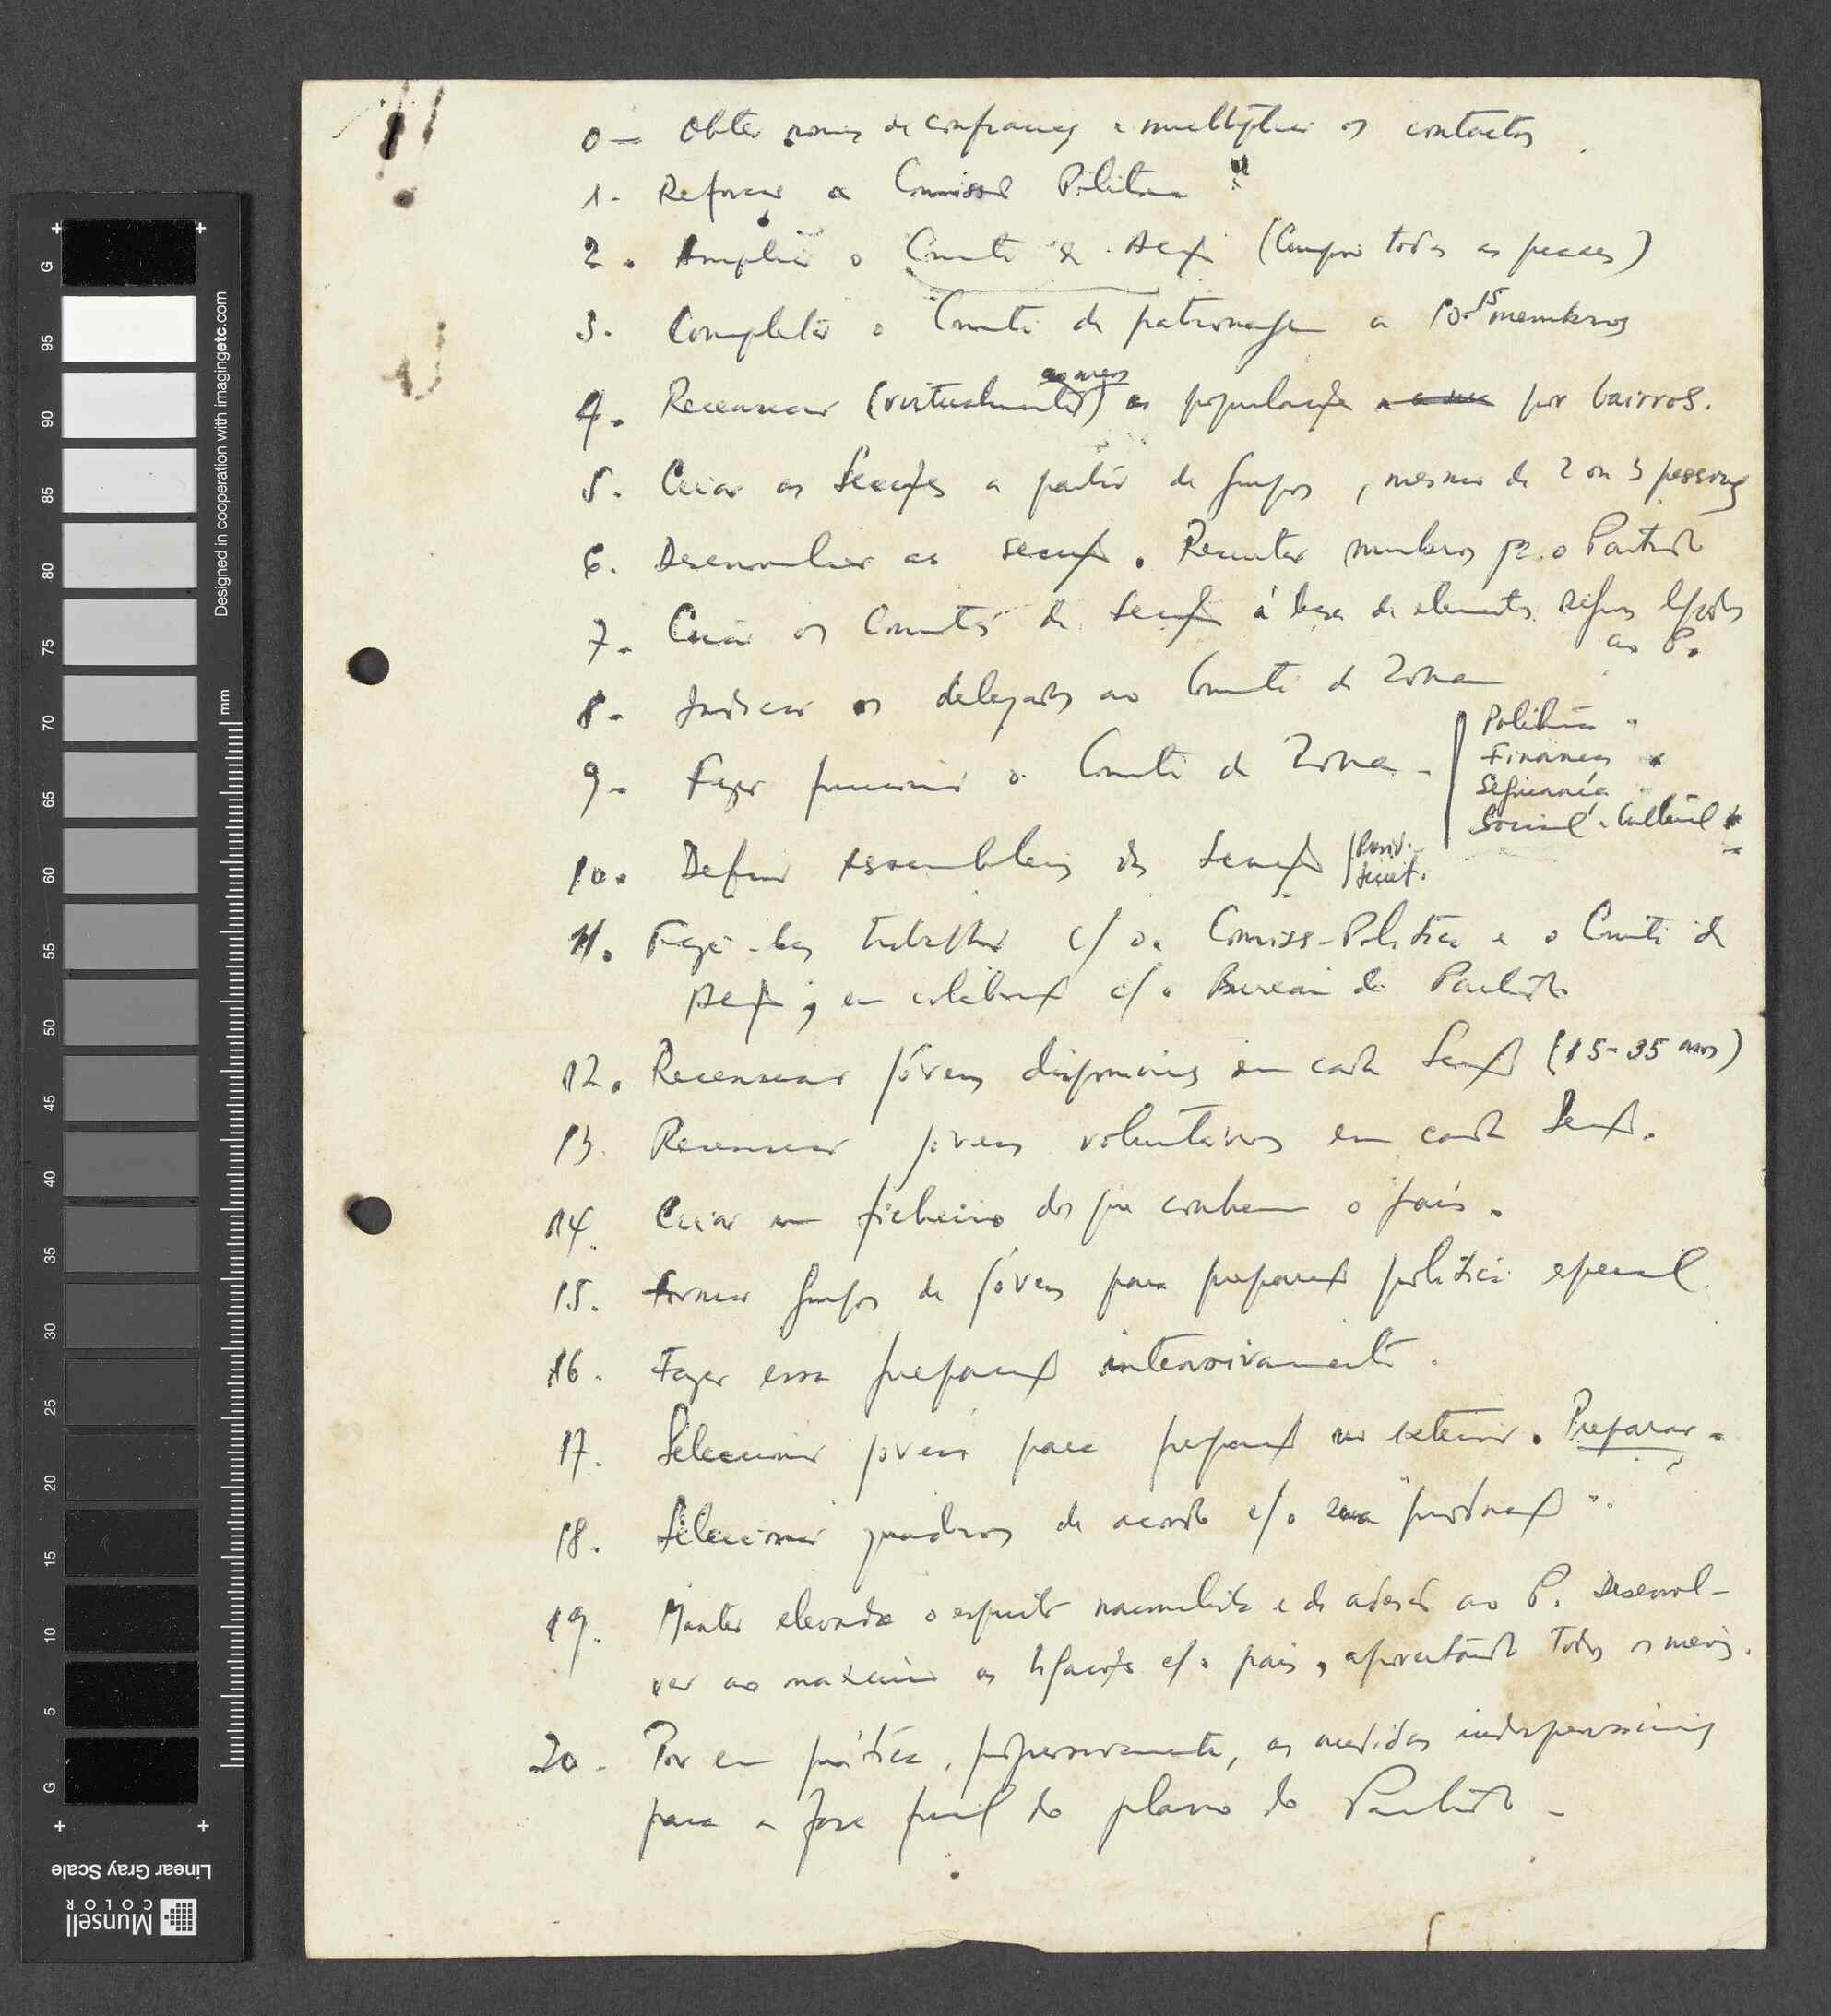 0 — Obter nomes de confiança e multiplicar os contactos
1. Reforçar a Comissão Politica
2. Ampliar o Comité de Acção (Cumprir todas as )
3. Completar o Comité de patronagem a 10-15 membros
ao menos
4. Recensear (virtualmente) as população por bairros.
5. Criar as Secções a partir de grupos, mesmo de 2 ou 3 pessoas
6. Desenvolver as secções. Recrutar membros pa. o Partido
7. Criar os Comités de Secção á base de elementos seguros ligados
ao P.
8- Indicar os delegados ao Comité de Zona
9- Fazer funcionar o Comité de Zona -
Politica
Finanças
Segurança
Social e Cultural
10. Definir Assembleias de Secção
Presid.
Secret.
11. Fazê-las trabalhar c/ a Comiss-Politica e o Comité de
Acção, em colaboração c/ o Bureau do Partido
12. Recensear jóvens disponiveis em cada Secção (15-35 anos)
13. Recensear jovens voluntários em cada Secção.
14. Criar um ficheiro dos que conhecem o país.
15. Formar grupos de jóvens para preparação politica especial.
16. Fazer essa preparação intensivamente.
17. Seleccionar jovens para preparação no exterior. Preparar-
18. Seleccionar quadros de acordo c/ a sua "
19. Manter elevado o espirito nacionalista e de adesão ao P. Desenvol-
ver ao maximo as ligações c/ o país, aproveitando todos os meios.
20. Por em prática, progressivamente, as medidas indispensáveis
para a fase final do plano do Partido -
Designed in cooperation with imagingetc.com
mm
G 95 90 85 80 75 70 65 60 55 50 45 40 35 30 25 20 15 10 5 G
Linear Gray Scale
Munsell
COLOR